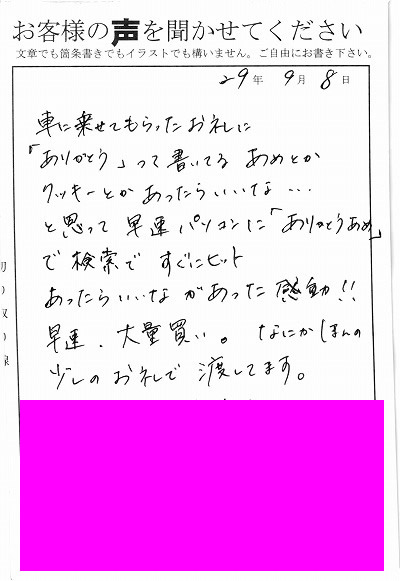 お客様の声を聞かせてください
文章でも箇条書きでもイラストでも構いません。ご自由にお書き下さい。
29年 9月 8日
車に乗せてもらったお礼に
「ありがとう」って書いてる あめとか
クッキーとか あったらいいな…
と思って 早速 パソコンに「ありがとうあめ」
で 検索で すぐにヒット
あったらいいな が あった 感動!!
早速、大量買い。 なにかほんの
少しの お礼で 渡してます。